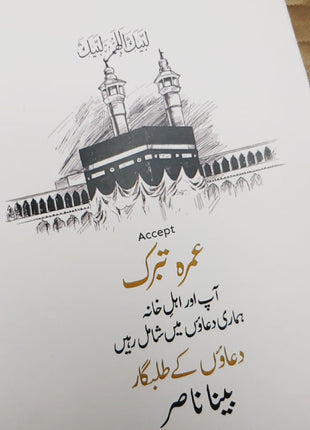 لبیک اللھم لبیک
Accept
عمرہ تبرک
آپ اور اہلِ خانہ
ہماری دعاؤں میں شامل رہیں
دعاؤں کے طلبگار
بینا ناصر